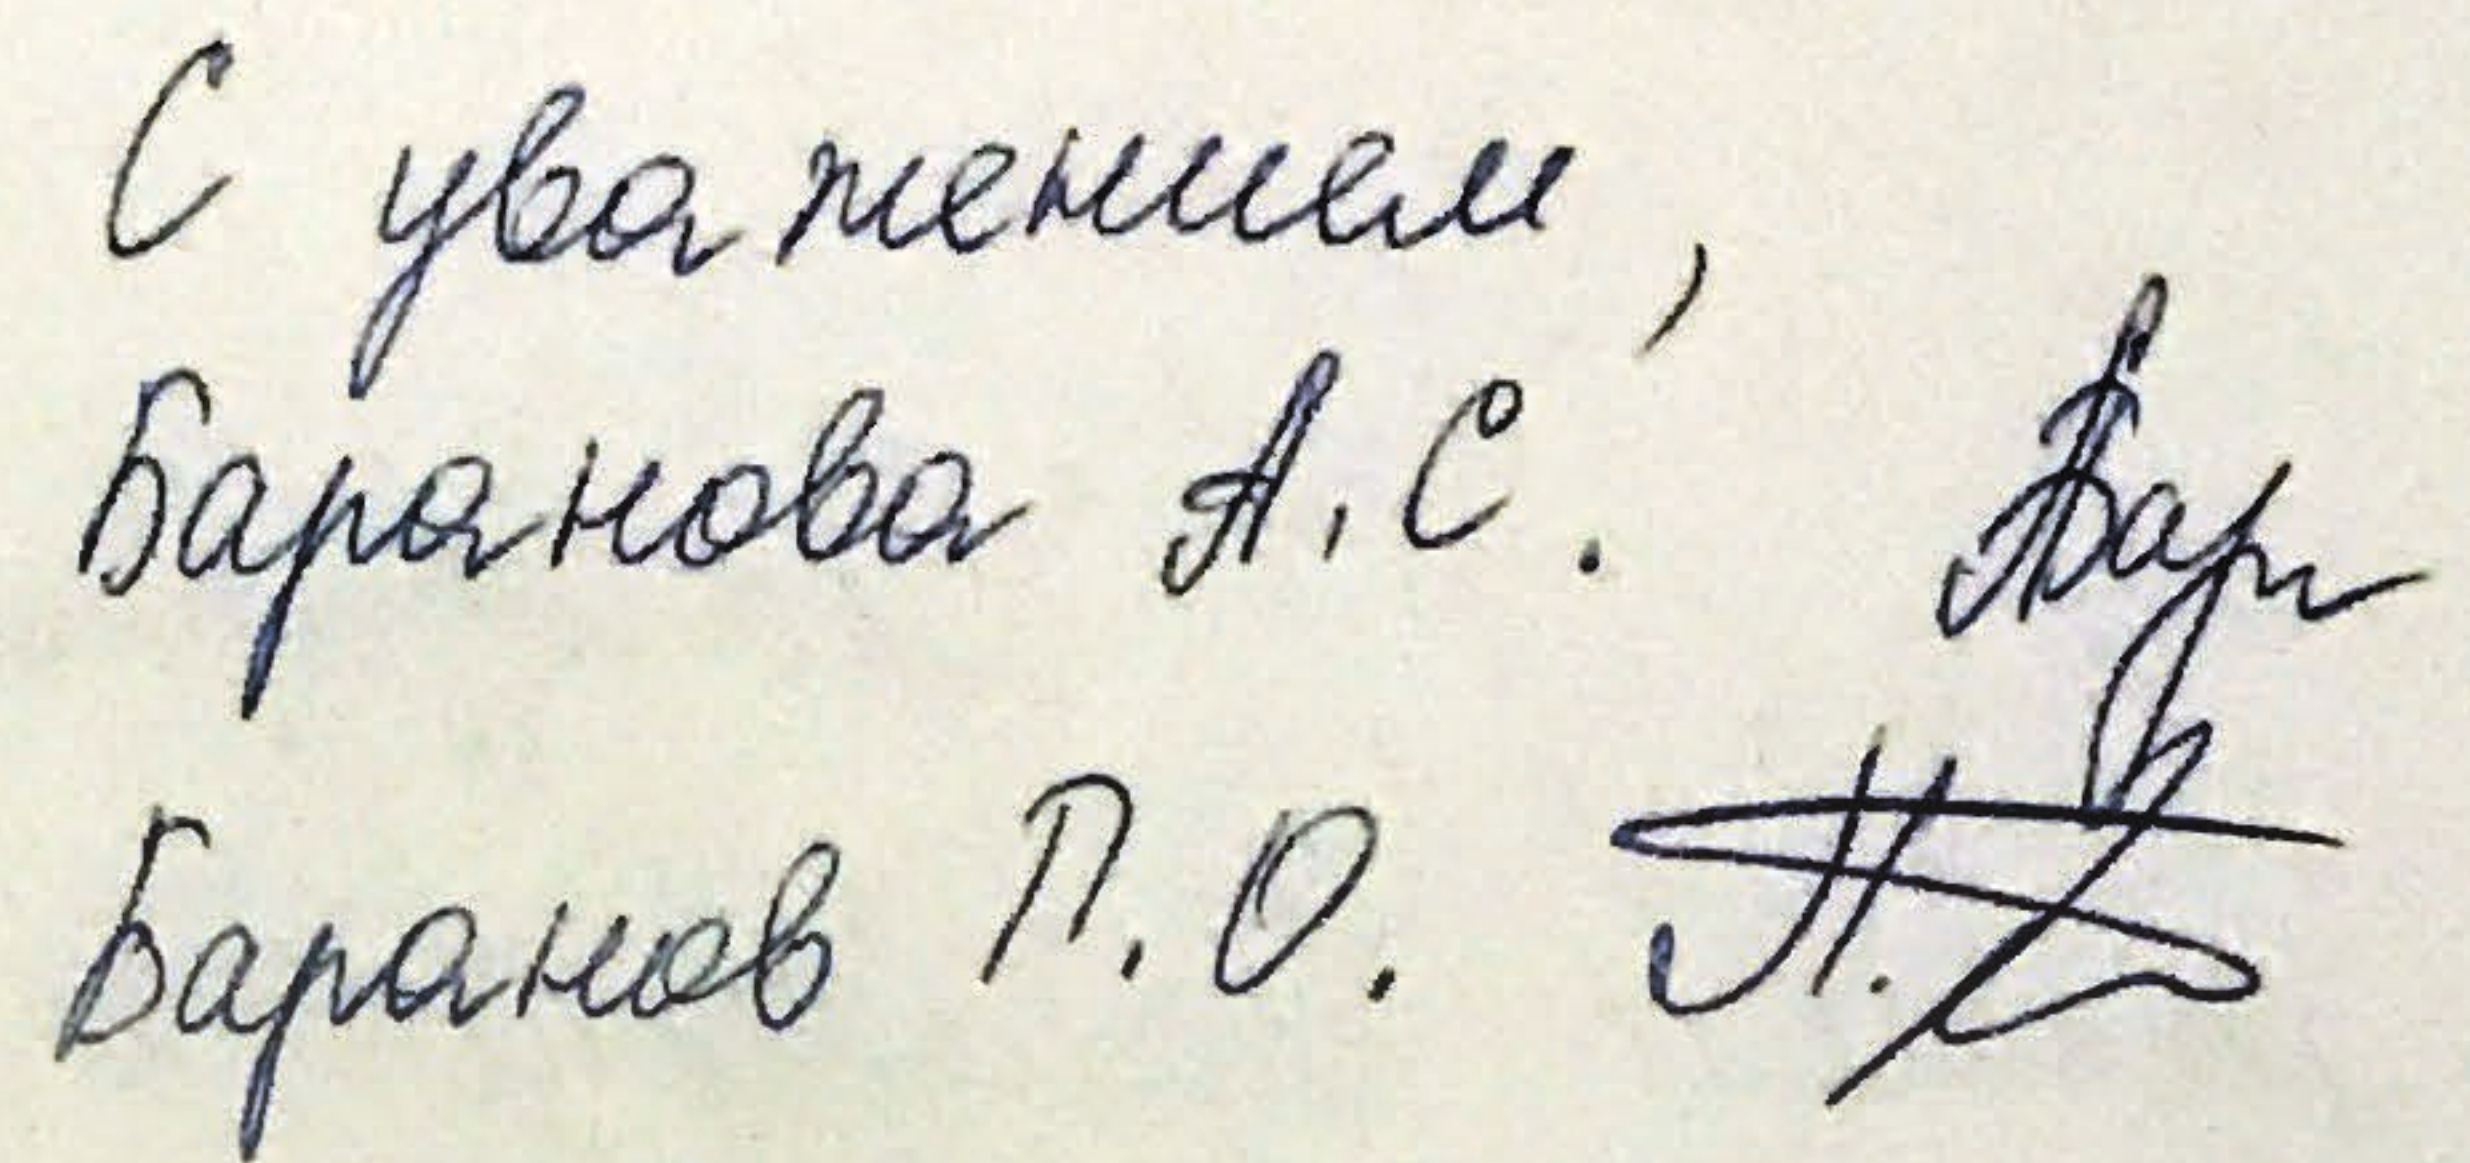 С уважением,
Баранова А.С.
Баранов П.О.